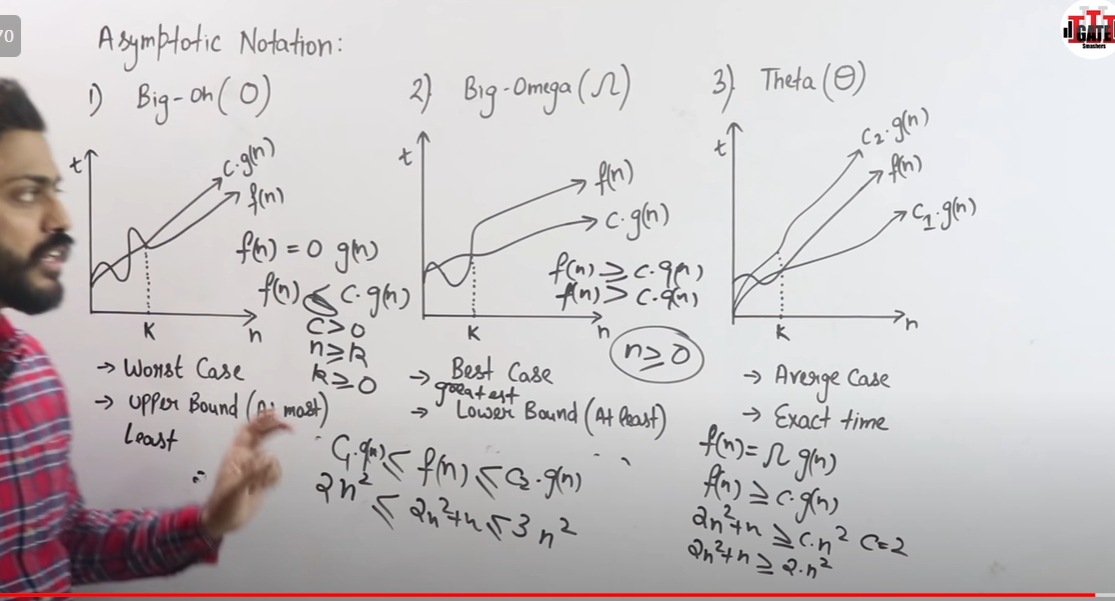 70
GATE
Smashers
Asymptotic Notation:
1) Big-Oh(O)
t
c.g(n)
f(n)
K
n
f(n) = O g(n)
f(n) ≤ c.g(n)
c>0
n≥k
k≥0
→ Worst Case
→ Upper Bound (At most)
least
2) Big-Omega(Ω)
t
f(n)
c.g(n)
K
n
f(n) ≥ c.g(n)
f(n) > c.g(n)
n≥0
→ Best Case
greatest
→ Lower Bound (At least)
C1.g(n) ≤ f(n) ≤ C2.g(n)
2n² ≤ 2n²+n ≤ 3n²
3) Theta(Θ)
t
C2.g(n)
f(n)
C1.g(n)
K
n
→ Averge Case
→ Exact time
f(n)=Ω g(n)
f(n) ≥ c.g(n)
2n²+n ≥ c.n² C=2
2n²+n ≥ 2.n²